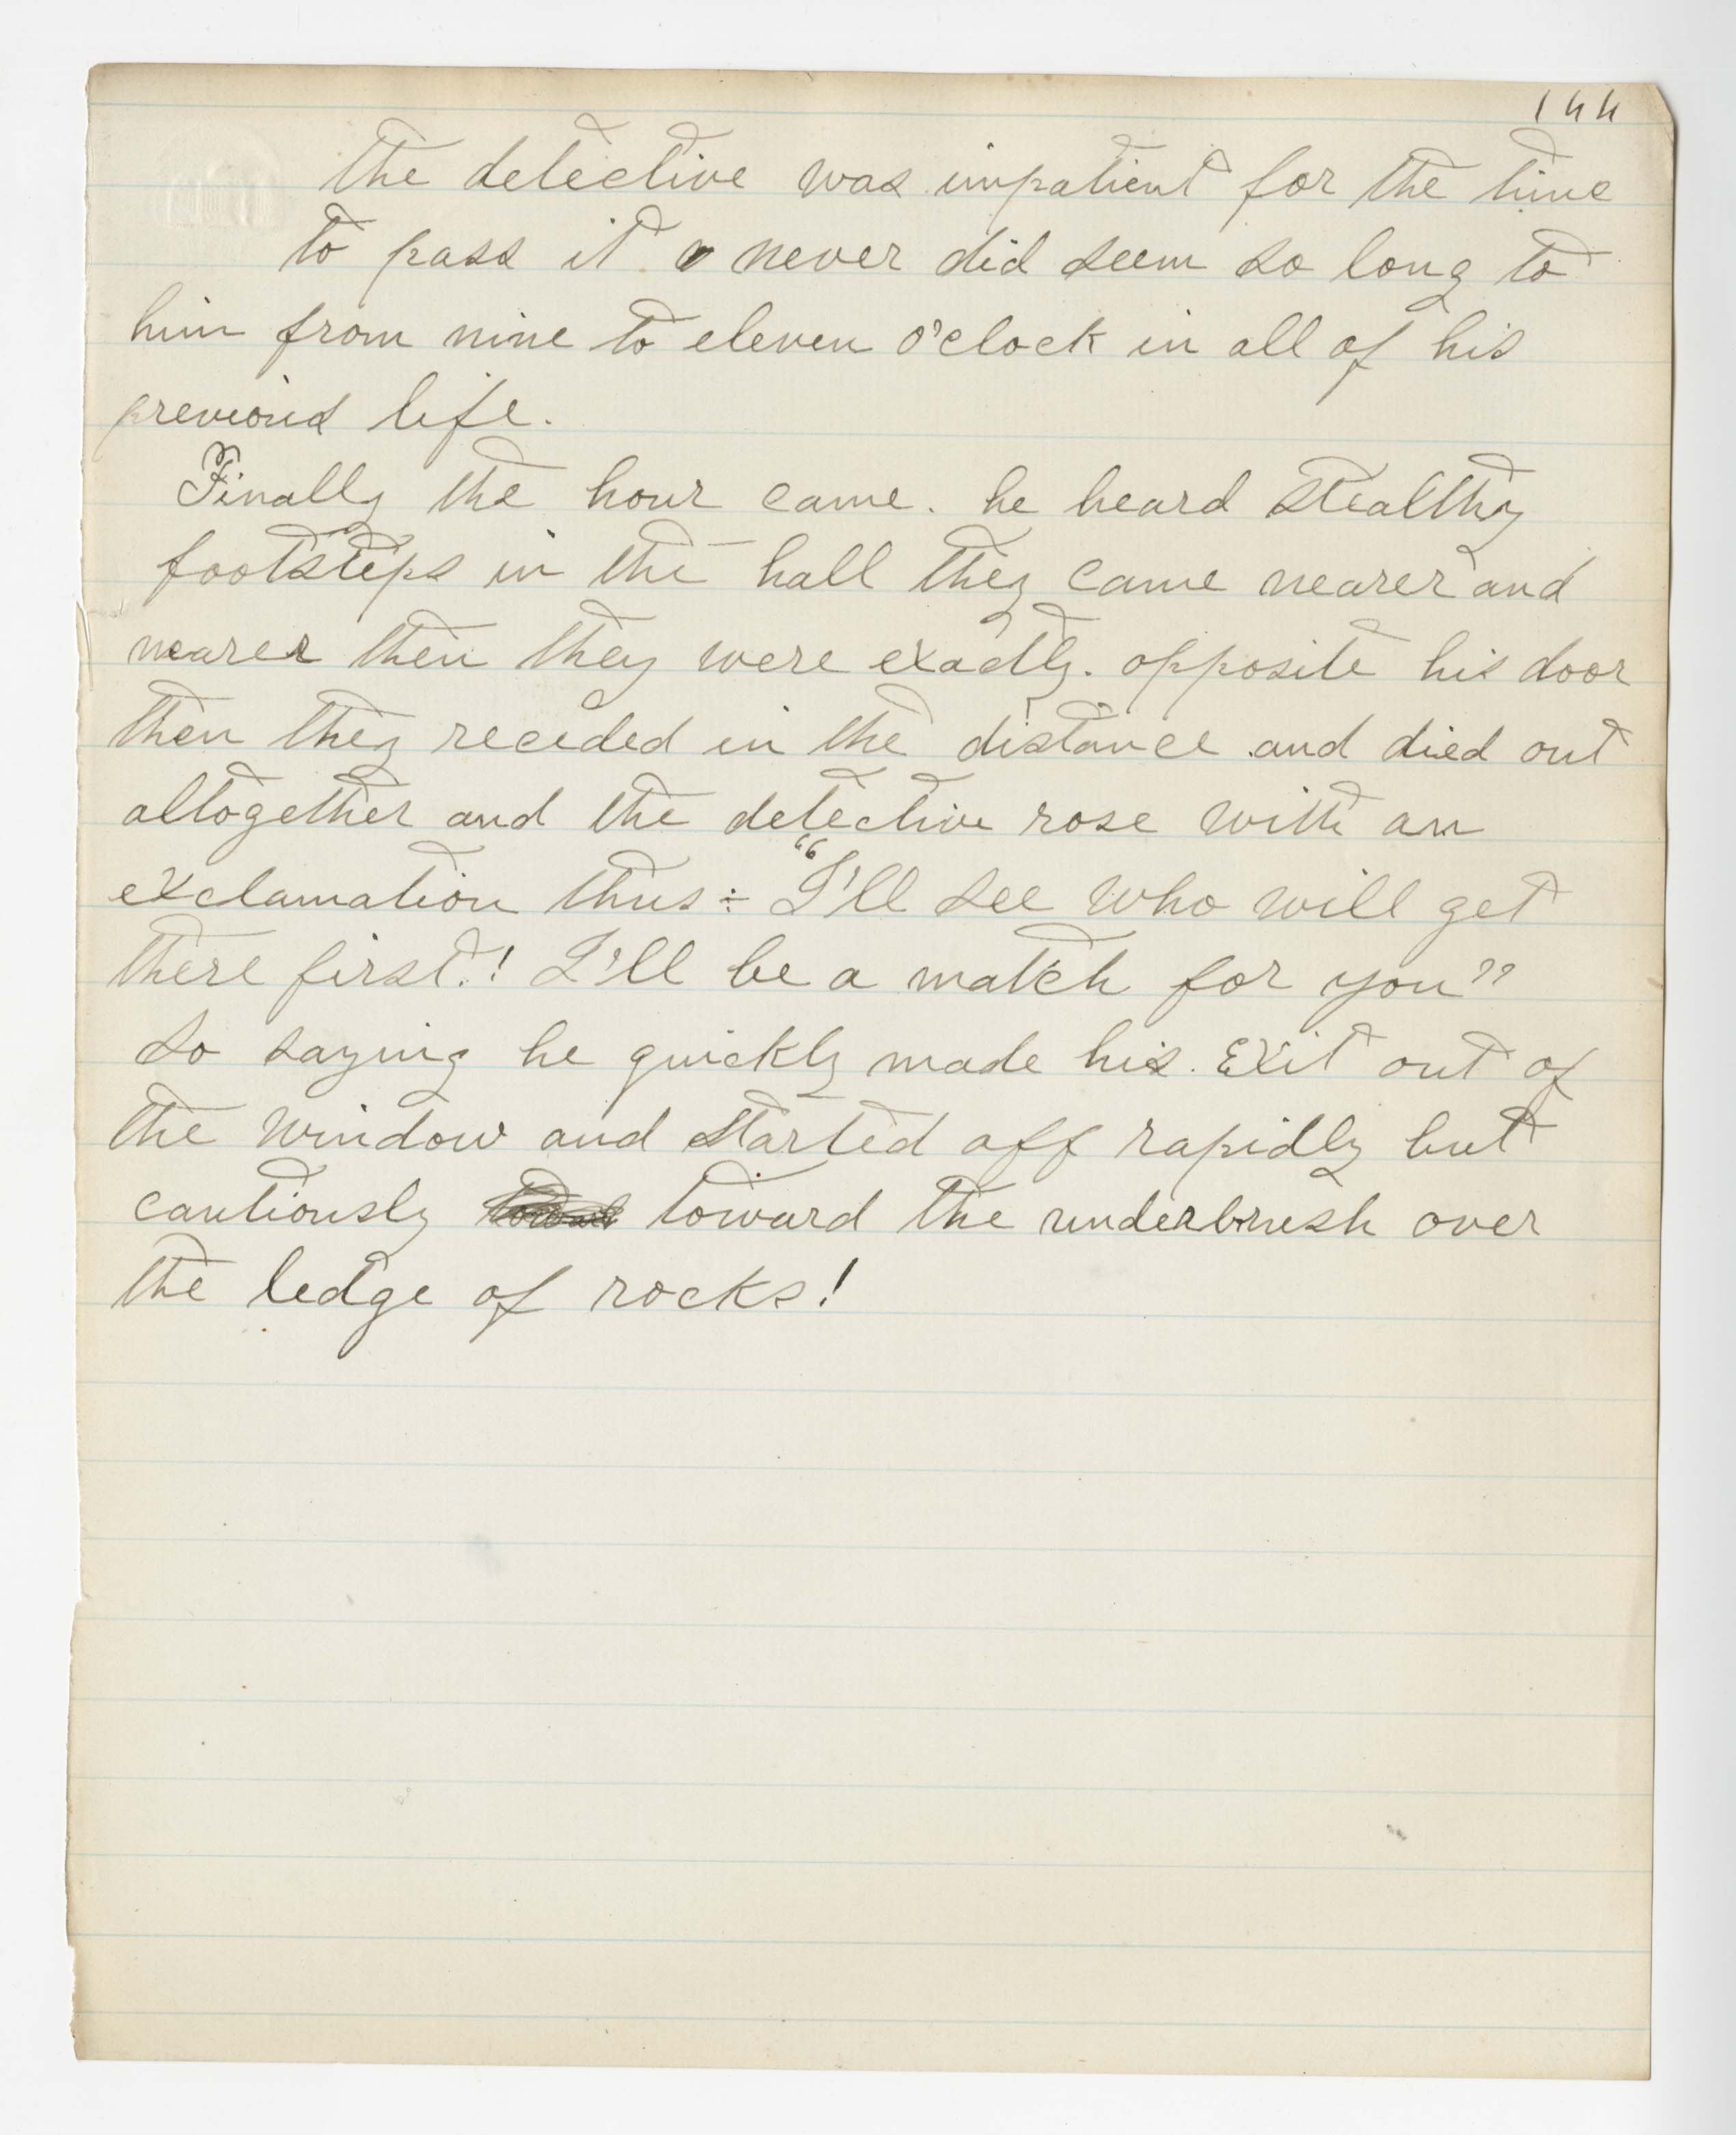 144
the detective was impatient for the time
to pass it never did seem so long to
him from nine to eleven o'clock in all of his
previous life.
Finally the hour came. he heard stealthy
footsteps in the hall they came nearer and
nearer then they were exactly. opposite his door
then they receded in the distance and died out
altogether and the detective rose with an
exclamation thus:- "I'll see who will get
there first.! I'll be a match for you"
So saying he quickly made his. Exit out of
the window and started off rapidly but
cautiously toward the underbrush over
the ledge of rocks!